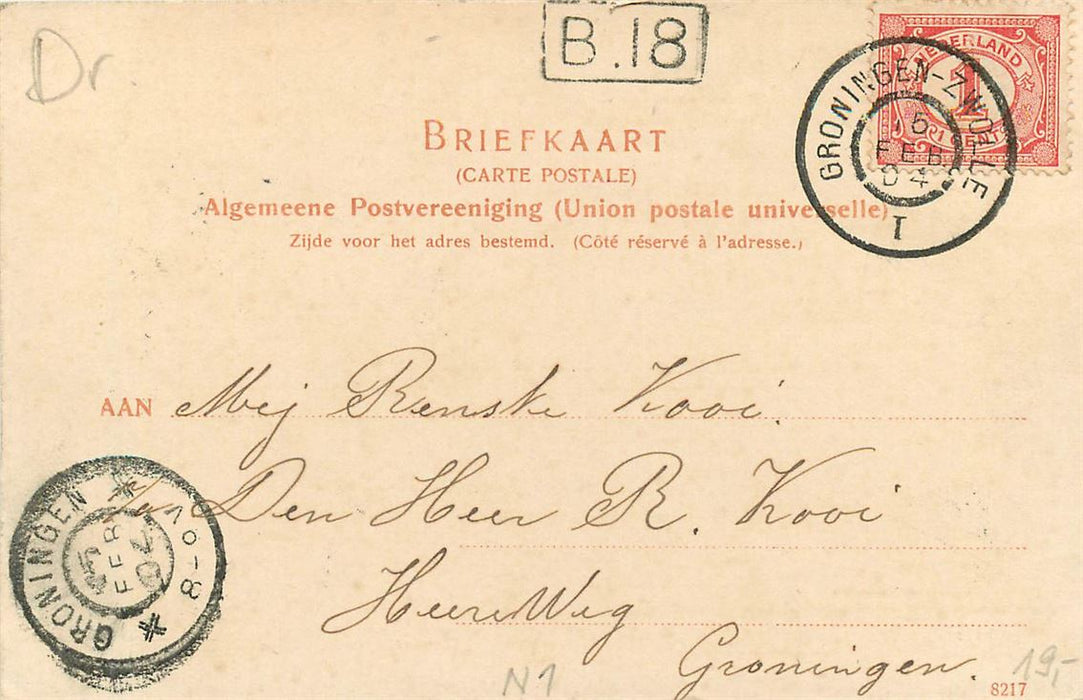 Dr.
B.18
NEDERLAND
1
GRONINGEN-ZWOLLE
5
FEB
04
I
BRIEFKAART
(CARTE POSTALE)
Algemeene Postvereeniging (Union postale universelle)
Zijde voor het adres bestemd. (Côté réservé à l'adresse.)
AAN Mej Renske Kooi.
Den Heer R. Kooi
HeereWeg
Groningen.
GRONINGEN
5
FEB
04
7-8
N1
19,-
8217